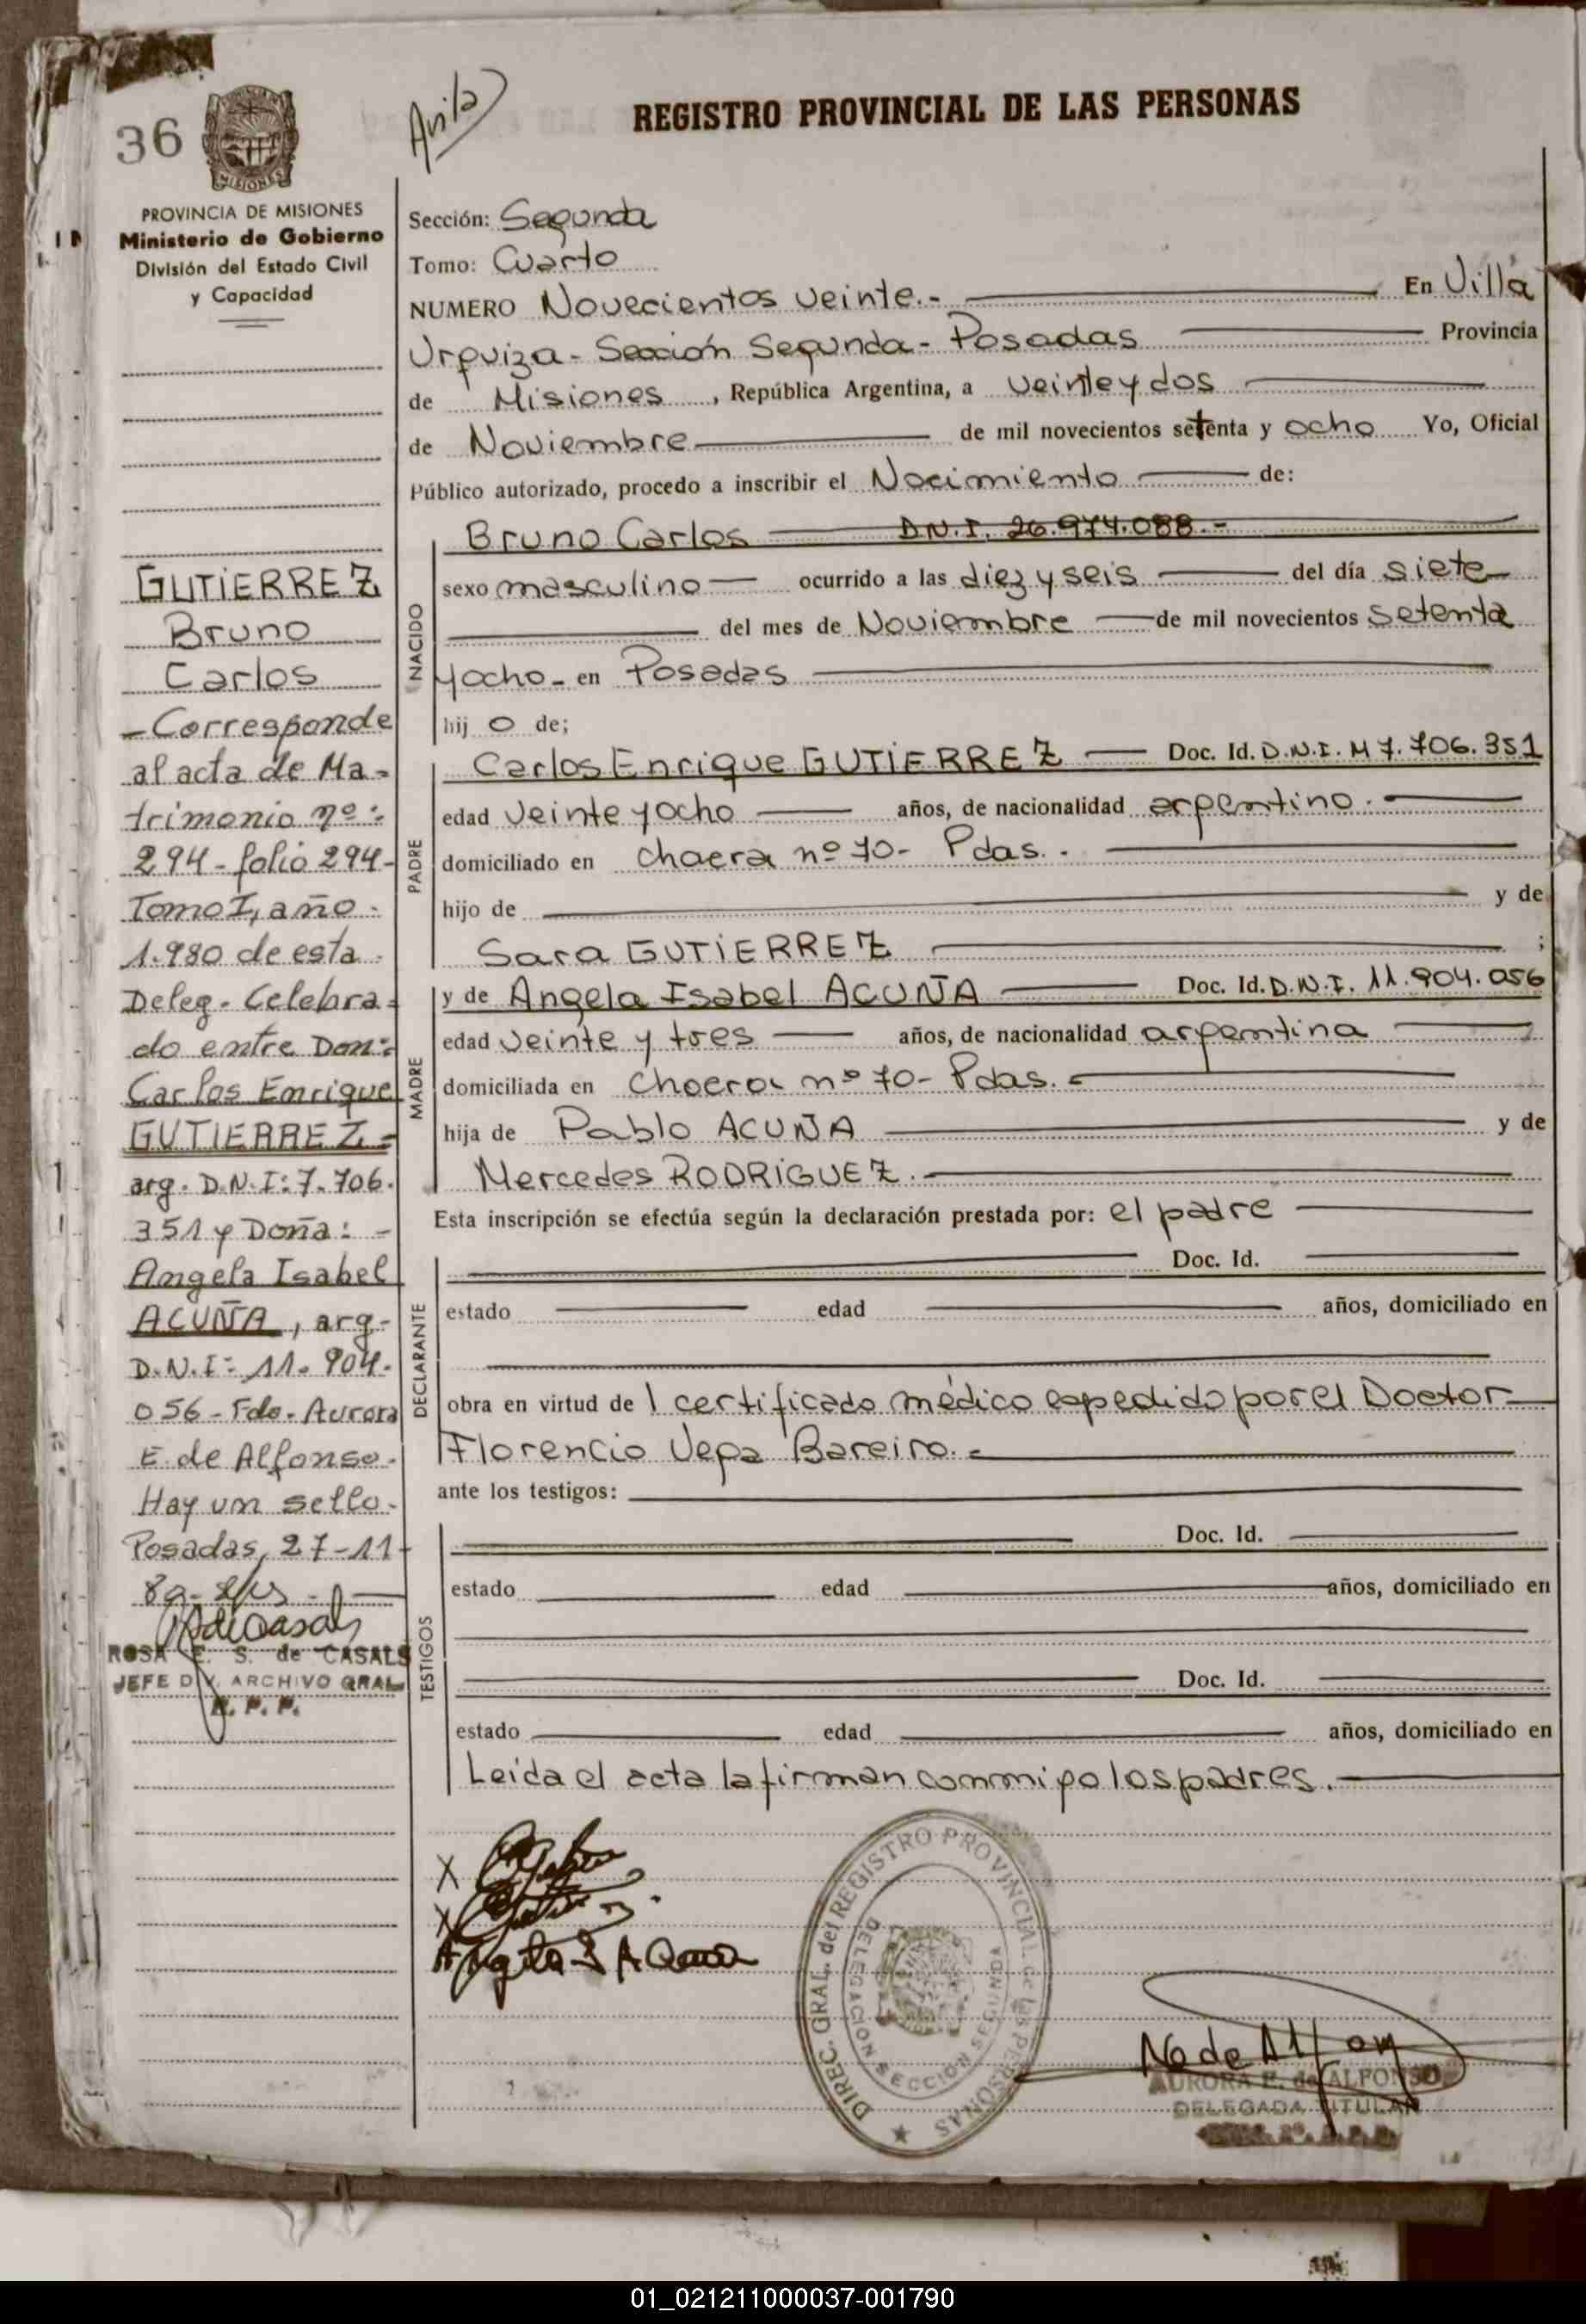 36
MISIONES
PROVINCIA DE MISIONES
Ministerio de Gobierno
División del Estado Civil
y Capacidad
GUTIERREZ
Bruno
Carlos
- Corresponde
al acta de Ma-
trimonio nº:
294 - folio 294-
Tomo I, año
1.980 de esta
Deleg. Celebra-
do entre Don:
Carlos Enrique
GUTIERREZ-
arg. D.N.I: 7.706.
351 y Doña: -
Angela Isabel
ACUÑA, arg-
D.N.I: 11.904.
056 - Fdo. Aurora
E de Alfonso.
Hay un sello.
Posadas, 27-11-
ROSA E. S. de CASALS
JEFE DIV. ARCHIVO GRAL
R. P. P.
REGISTRO PROVINCIAL DE LAS PERSONAS
Sección: Segunda
Tomo: Cuarto
NUMERO Novecientos veinte.- En Villa
Urquiza - Sección Segunda - Posadas Provincia
de Misiones, República Argentina, a veinte y dos
de Noviembre de mil novecientos setenta y ocho Yo, Oficial
Público autorizado, procedo a inscribir el Nacimiento de:
Bruno Carlos D.N.I. 26.974.088.-
sexo masculino ocurrido a las diez y seis del día siete
del mes de Noviembre de mil novecientos setenta
y ocho - en Posadas
hij o de;
NACIDO
Carlos Enrique GUTIERREZ Doc. Id. D.N.I. M 7.706.351
edad veinte y ocho años, de nacionalidad argentino.
domiciliado en chacra nº 70- Pdas.-
hijo de y de
Sara GUTIERREZ ;
PADRE
y de Angela Isabel ACUÑA Doc. Id. D.N.I. 11.904.056
edad veinte y tres años, de nacionalidad argentina
domiciliada en Chacra nº 70- Pdas.
hija de Pablo ACUÑA y de
Mercedes RODRIGUEZ.-
MADRE
Esta inscripción se efectúa según la declaración prestada por: el padre
Doc. Id.
estado edad años, domiciliado en
DECLARANTE
obra en virtud de 1 certificado médico expedido por el Doctor
Florencio Vega Bareiro.-
ante los testigos:
Doc. Id.
estado edad años, domiciliado en
TESTIGOS
Doc. Id.
estado edad años, domiciliado en
Leida el acta la firman conmigo los padres.
DIREC. GRAL. del REGISTRO PROVINCIAL de las PERSONAS
DELEGACION SECCION SEGUNDA
AURORA E. de ALFONSO
DELEGADA TITULAR
01_021211000037-001790